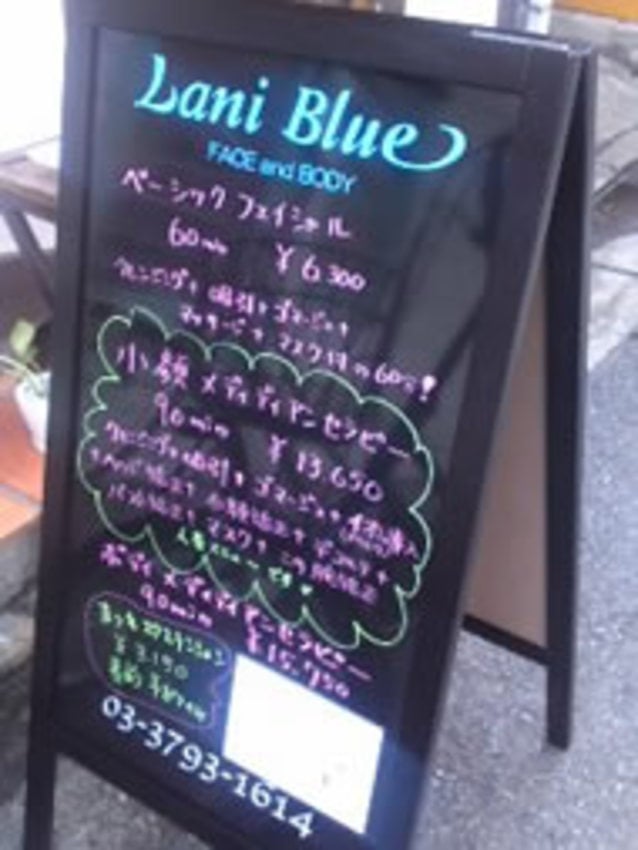 Lani Blue
FACE and BODY
ベーシック フェイシャル
60min ¥6,300
クレンジング+吸引+ゴマージュ+
マッサージ+マスク付の60分!
小顔 メディディアンセンビー
90min ¥13,650
クレンジング+吸引+ゴマージュ+
小顔矯正+
マスク+
人気メニューです♥
ボディ メディディアンセンビー
90min ¥15,750
¥3,150
03-3793-1614